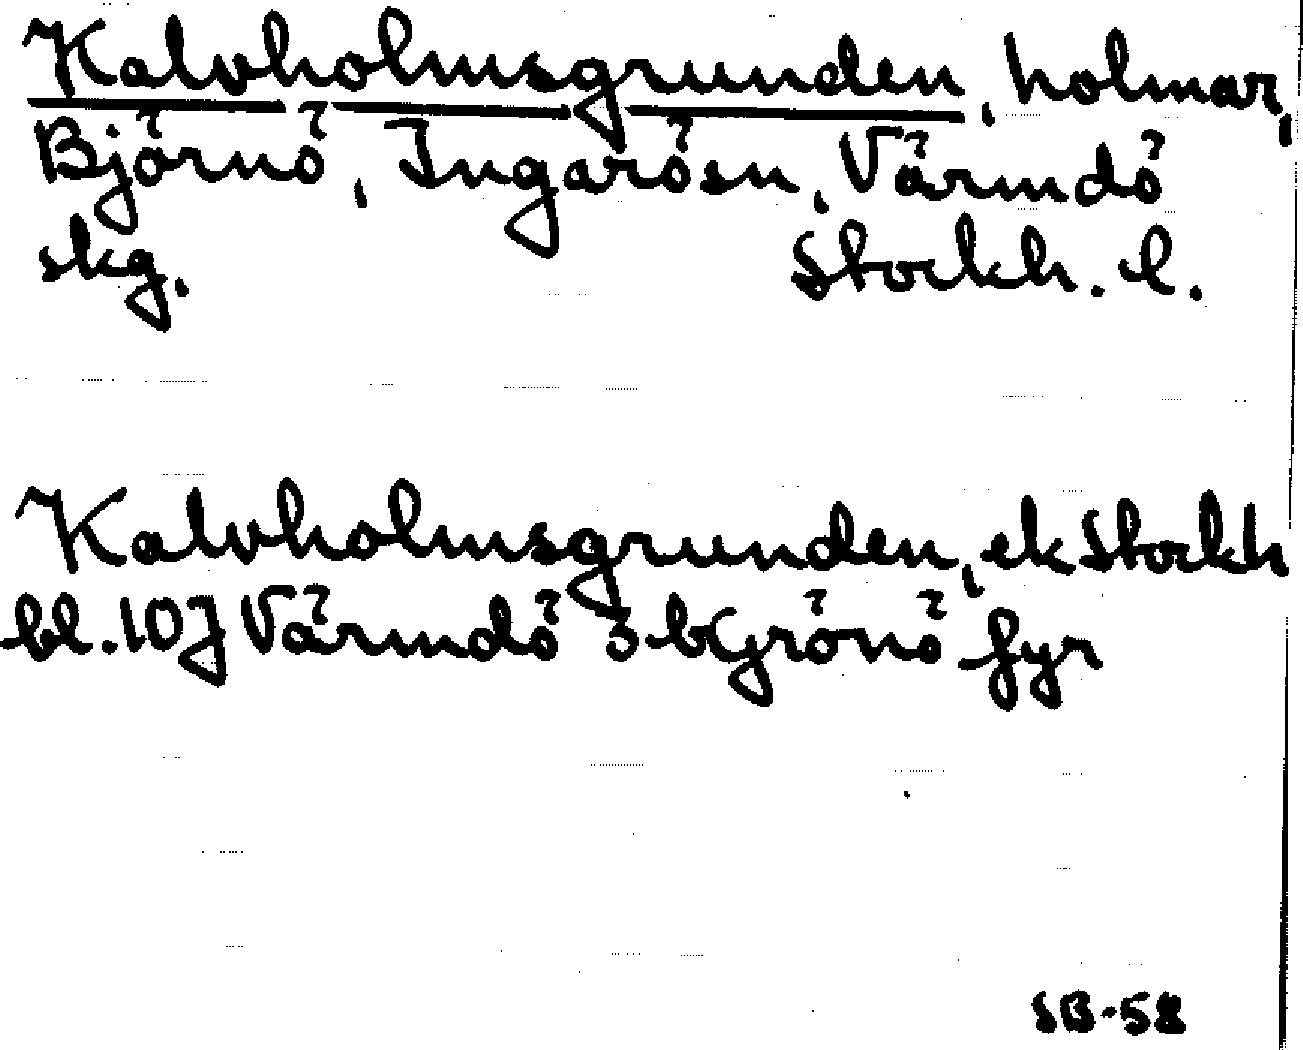 Kalvholmsgrunden, holmar,
Björnö, Ingarösn, Värmdö
skg. Stockh. l.
Kalvholmsgrunden, ek Stockh
bl. 10J Värmdö 3b Grönö fyr
SB-58